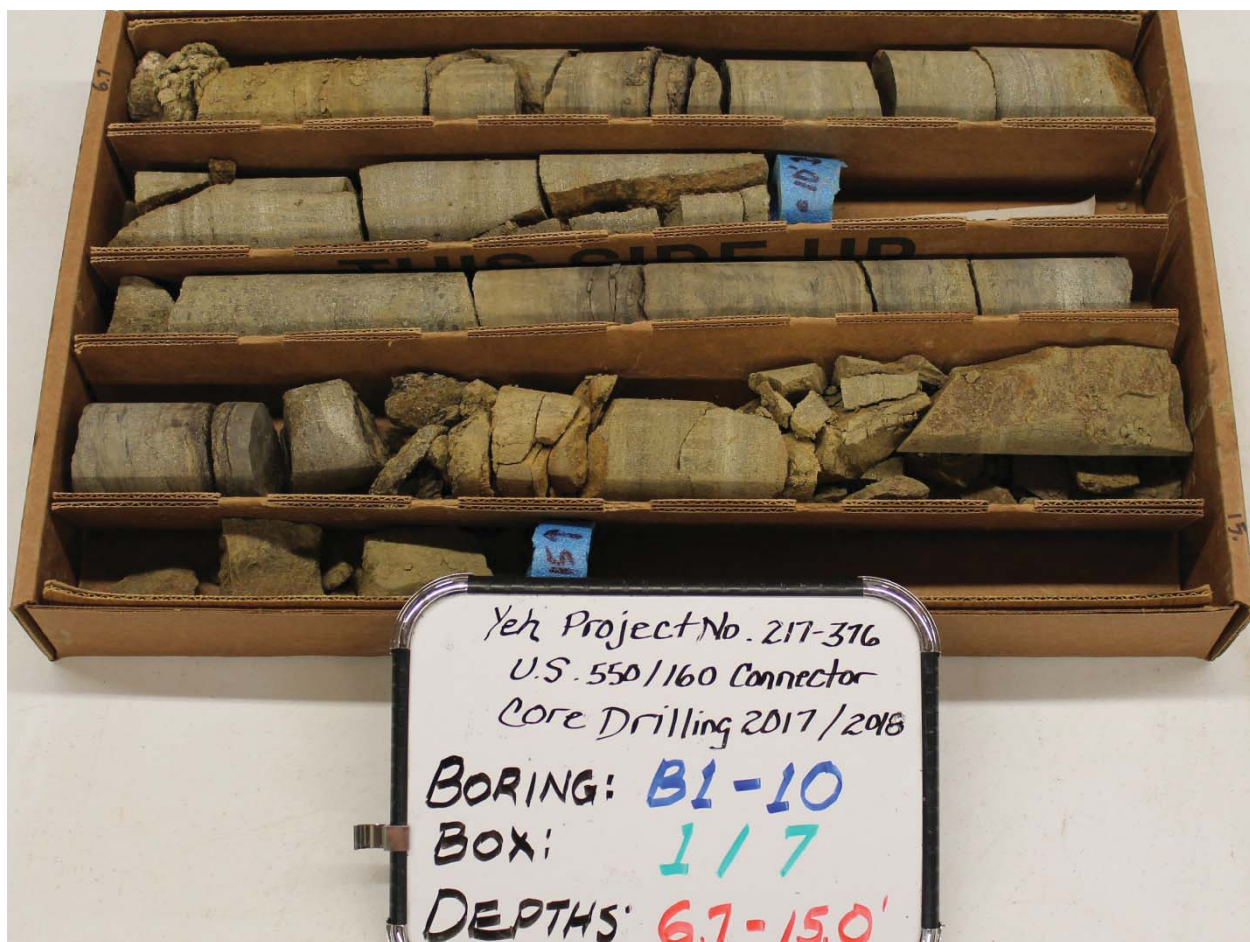 6.7'
THIS SIDE UP
15.
15↑
Yeh Project No. 217-376
U.S. 550/160 Connector
Core Drilling 2017/2018
BORING: B1-10
BOX: 1/7
DEPTHS: 6.7-15.0'